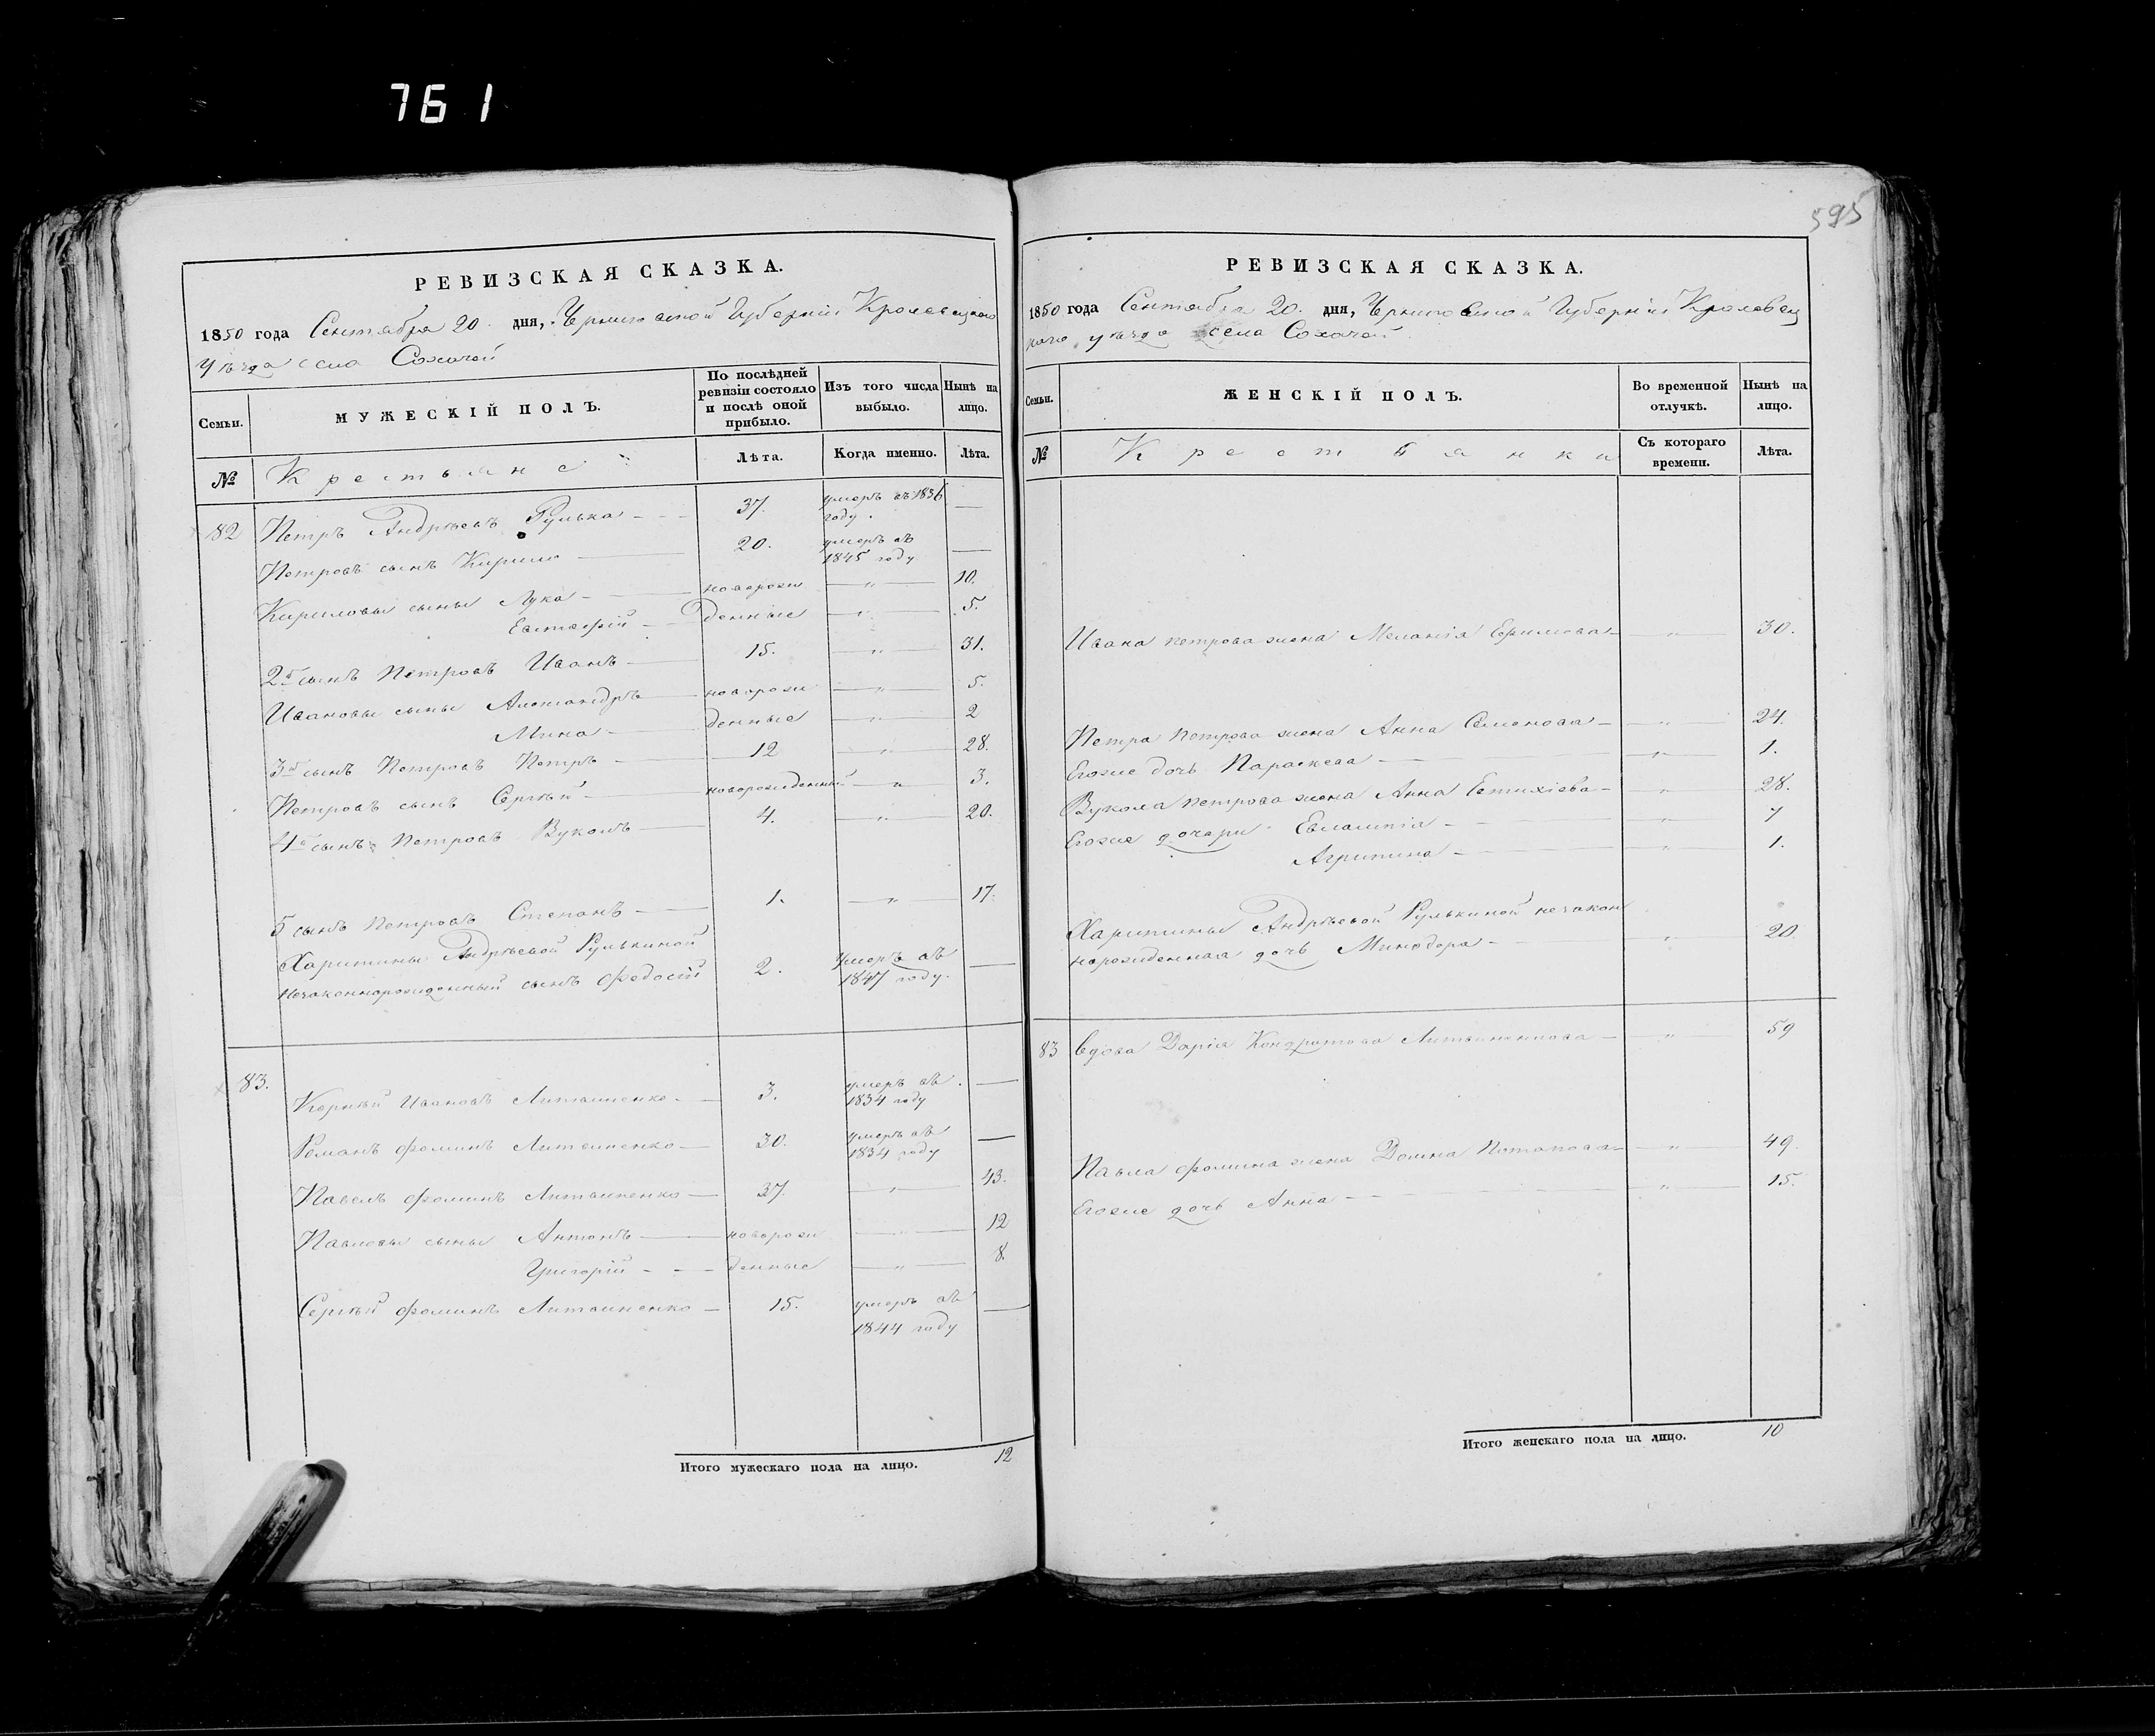 761
РЕВИЗСКАЯ СКАЗКА.
1850 года Сентября 20. дня, Черниговской Губерніи Кролевецкаго
уѣзда села Сохачей
Семьи.
МУЖЕСКІЙ ПОЛЪ.
По послѣдней ревизіи состояло и послѣ оной прибыло.
Изъ того числа выбыло.
Нынѣ на лицо.
№
Крестьяне
Лѣта.
Когда именно.
Лѣта.
82 Петръ Андрѣевъ Рулька 37. умеръ въ 1836 году. —
Петровъ сынъ Кирило 20. умеръ въ 1845 году —
Кириловы сыны Лука новорож — " — 10.
Евстафій денные — " — 5.
2й сынъ Петровъ Иванъ 15. — " — 31.
Ивановы сыны Александръ новорож — " — 5.
Мина денные — " — 2
3й сынъ Петровъ Петръ 12 — " — 28.
Петровъ сынъ Сергѣй новорожденный — " — 3.
4й сынъ Петровъ Вуколъ 4. — " — 20.
5 сынъ Петровъ Степанъ 1. — " — 17.
Харитины Андрѣевой Рулькиной
незаконнорожденный сынъ Федосій 2. умеръ въ 1847 году. —
83.
Корнѣй Ивановъ Литвиненко 3. умеръ въ 1834 году —
Романъ Фоминъ Литвиненко 30. умеръ въ 1834 году —
Павелъ Фоминъ Литвиненко 37. — " — 43.
Павловы сыны Антонъ новорож — " — 12
Григорій денные — " — 8.
Сергѣй Фоминъ Литвиненко 15. умеръ въ 1844 году —
Итого мужескаго пола на лицо. 12
595
РЕВИЗСКАЯ СКАЗКА.
1850 года Сентября 20. дня, Черниговской Губерніи Кролевец
каго уѣзда села Сохачей
Семьи.
ЖЕНСКІЙ ПОЛЪ.
Во временной отлучкѣ.
Нынѣ на лицо.
№
Крестьянки
Съ котораго времени.
Лѣта.
Ивана Петрова жена Меланія — " — 30.
Петра Петрова жена Анна Семенова — " — 24.
Егоже дочь Параскева — " — 1.
Вукола Петрова жена Анна Евтихіева — " — 28.
Егоже дочери Евлампія — " — 7
Агрипина — " — 1.
Харитины Андрѣевой Рулькиной незакон
норожденная дочь Минодора — " — 20
83 вдова Дарія Кондратова Литвиненкова — " — 59
Павла Фомина жена Домна Потапова — " — 49.
Егоже дочь Анна — " — 15.
Итого женскаго пола на лицо. 10